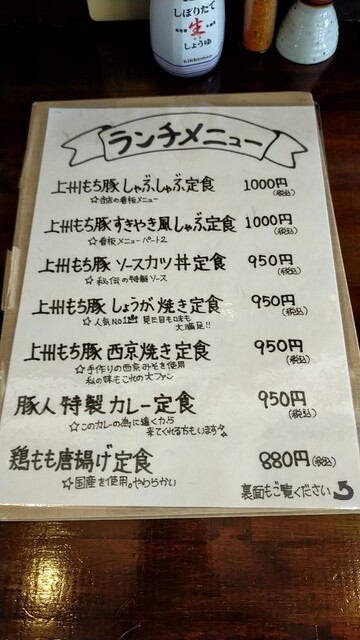 しぼりたて
生
しょうゆ
kikkoman
ランチメニュー
上州もち豚 しゃぶしゃぶ定食 1000円
(税込)
☆当店の看板メニュー
上州もち豚 すきやき風しゃぶ定食 1000円
(税込)
☆看板メニューパート2
上州もち豚 ソースカツ丼定食 950円
(税込)
☆秘伝の特製ソース
上州もち豚 しょうが焼き定食 950円
(税込)
☆人気No1 見た目も味も
大満足!!
上州もち豚 西京焼き定食 950円
(税込)
☆手作りの西京みそを使用
私の妹もこれの大ファン
豚人特製カレー定食 950円
(税込)
☆このカレーの為に遠くから
来てくれる方もいます☆
鶏もも唐揚げ定食 880円(税込)
☆国産を使用。やわらかい
裏面もご覧ください